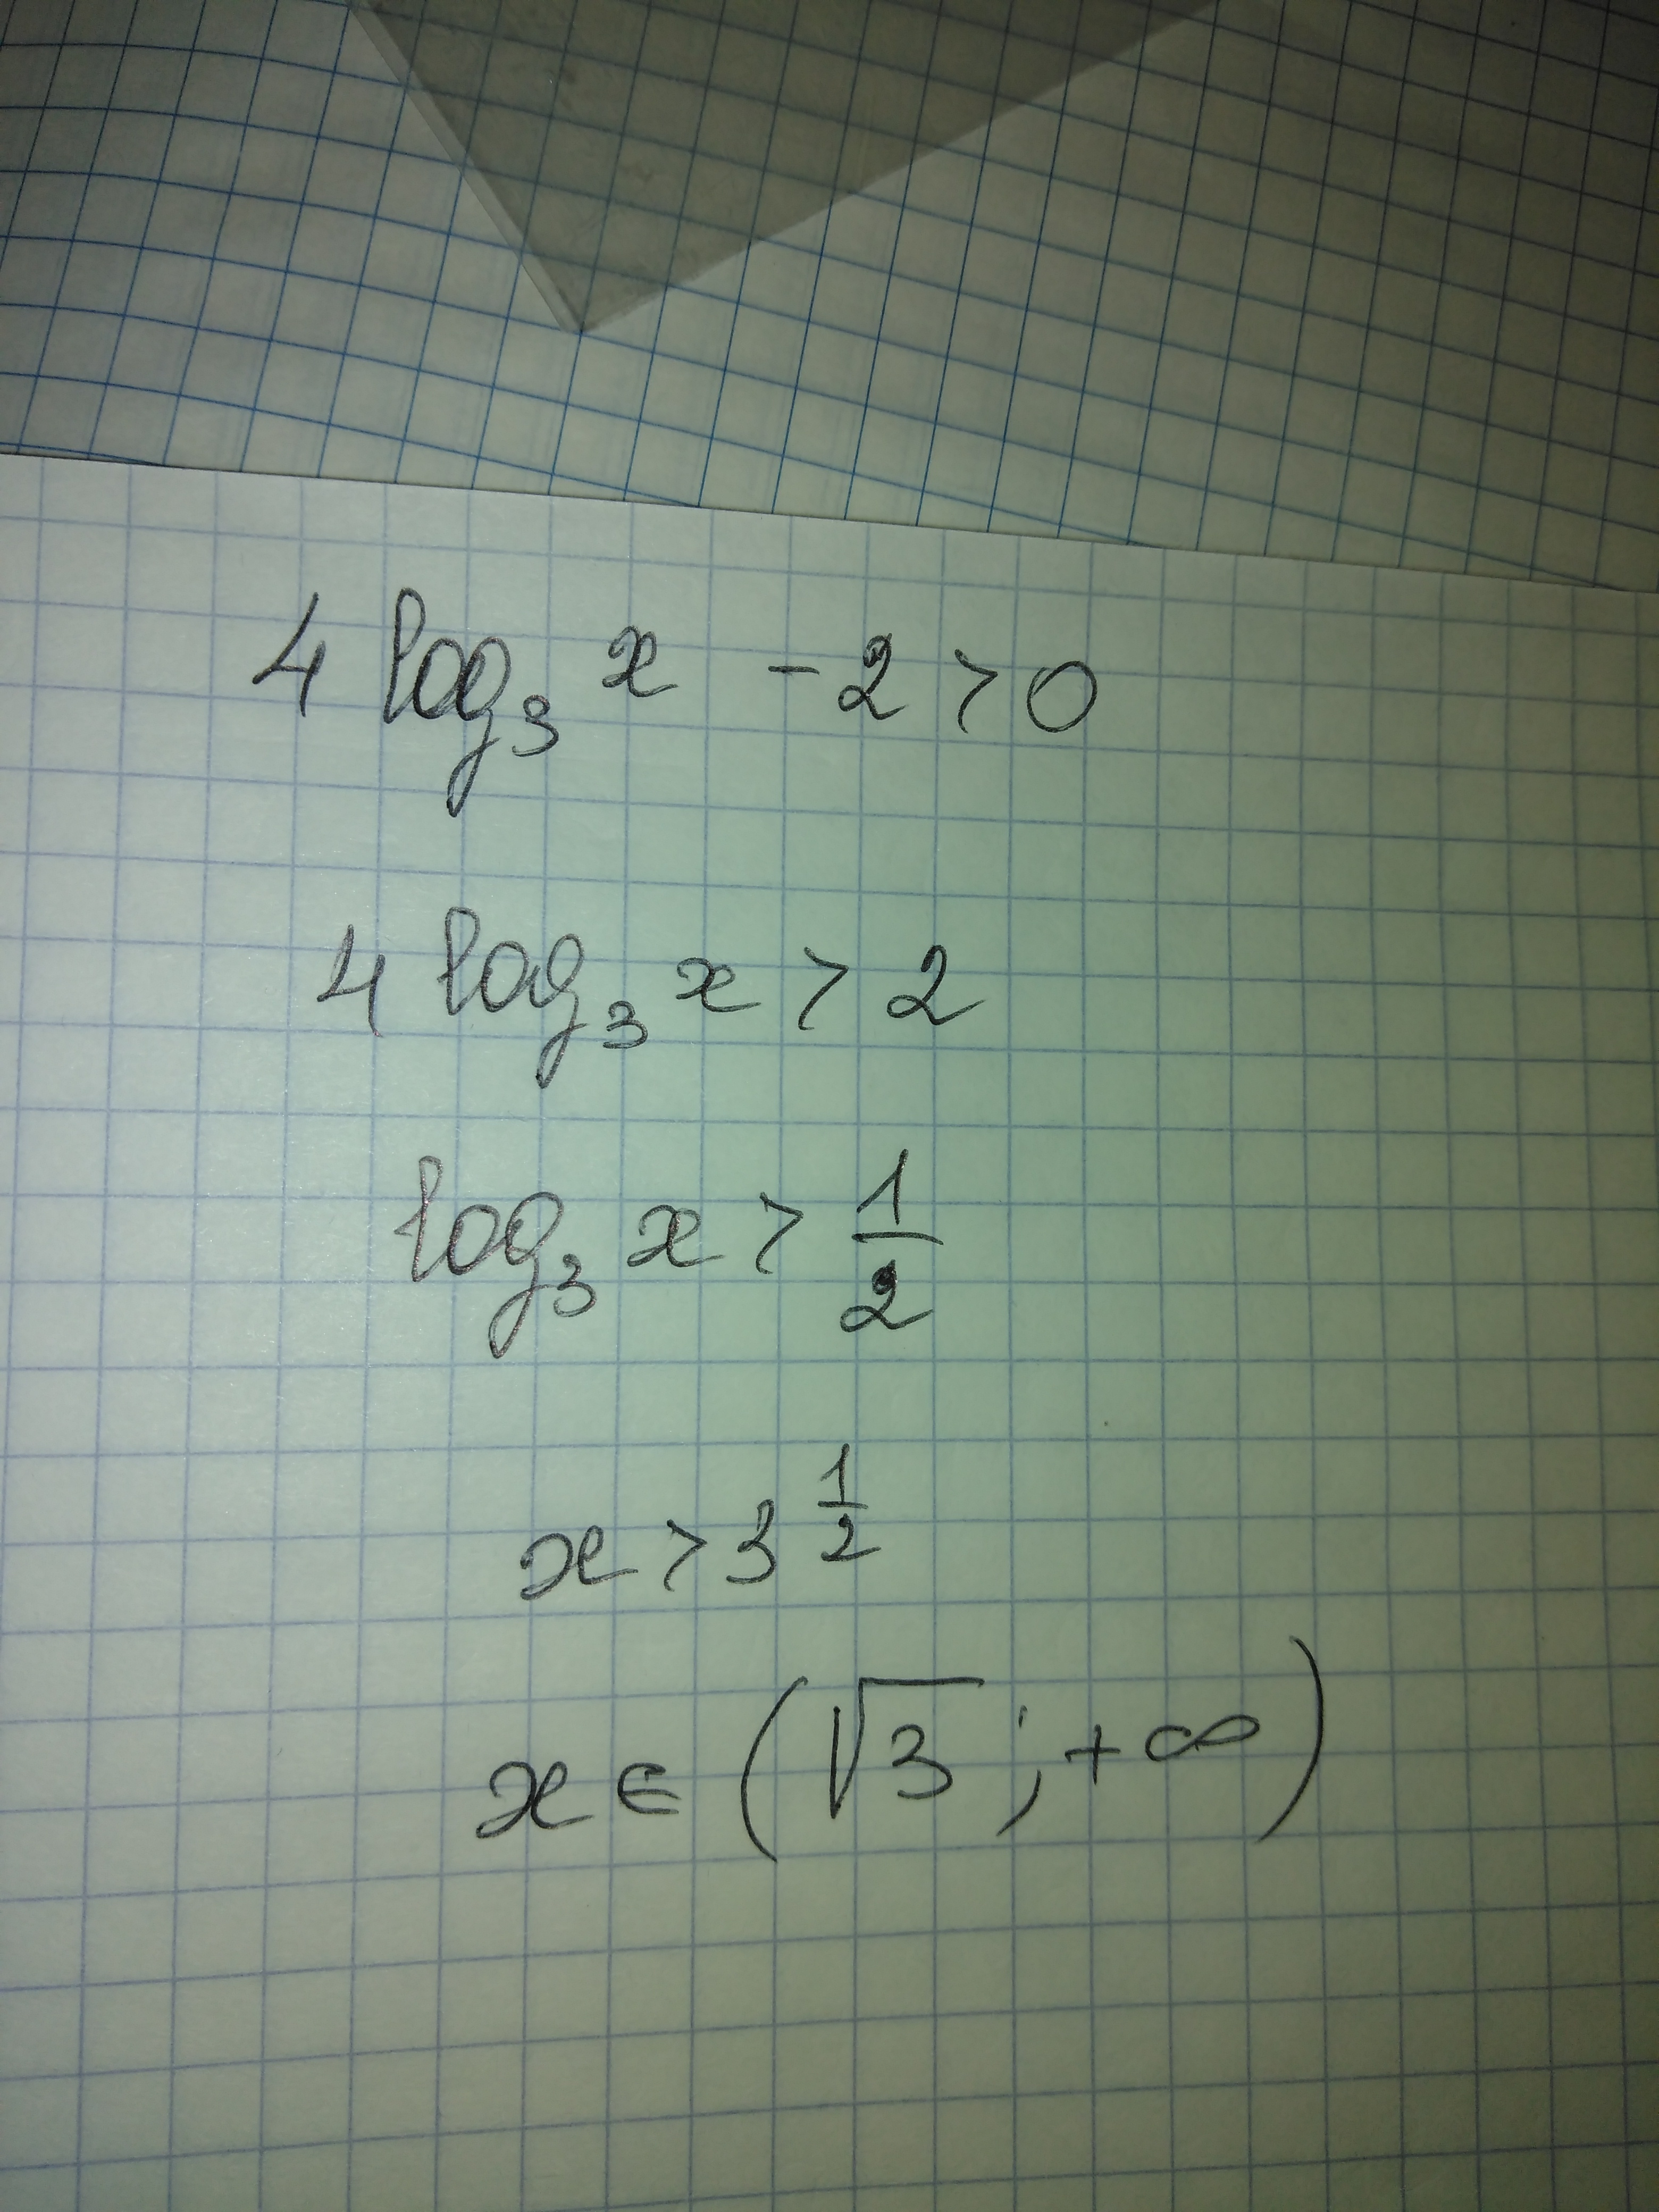 4 log₃ x - 2 > 0
4 log₃ x > 2
log₃ x > 1/2
x > 3^(1/2)
x ∈ (√3 ; +∞)